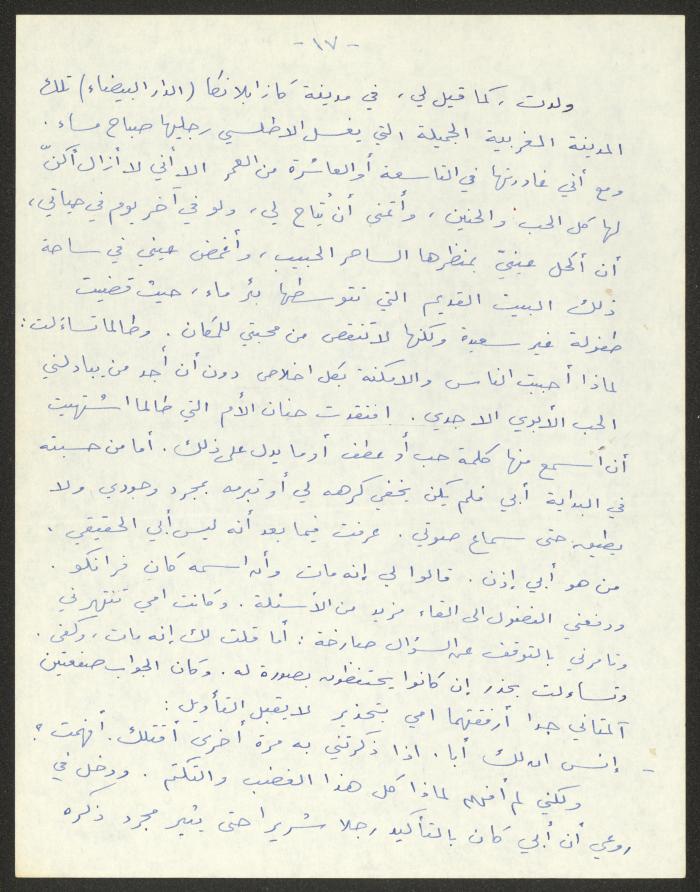 - ١٧ -
ولدت ، كما قيل لي ، في مدينة كازابلانكا (الدار البيضاء) تلك
المدينة المغربية الجميلة التي يغسل الاطلسي رجليها صباح مساء .
ومع أني غادرتها في التاسعة أو العاشرة من العمر الا أني لا أزال أكنّ
لها كل الحب والحنين ، وأتمنى أن يُتاح لي ، ولو في آخر يوم في حياتي ،
أن أكحل عينيّ بمنظرها الساحر الحبيب ، وأغمض عيني في ساحة
ذلك البيت القديم التي تتوسطها بئر ماء ، حيث قضيت
طفولة غير سعيدة ولكنها لا تنقص من محبتي للمكان . وطالما تساءلت :
لماذا أحببت الناس والامكنة بكل اخلاص دون أن أجد من يبادلني
الحب الأبوي الا جدي . افتقدت حنان الأم التي طالما اشتهيت
أن أسمع منها كلمة حب أو عطف أو ما يدل على ذلك . أما من حسبته
في البداية أبي فلم يكن يخفي كرهه لي أو تبرمه بمجرد وجودي ولا
يطيق حتى سماع صوتي . عرفت فيما بعد أنه ليس أبي الحقيقي .
من هو أبي إذن . قالوا لي إنه مات وأن اسمه كان فرانكو .
ودفعني الفضول الى القاء مزيد من الأسئلة . وكانت امي تنتهرني
وتامرني بالتوقف عن السؤال صارخة : أما قلت لك إنه مات ، وكفى .
وتساءلت بحذر إن كانوا يحتفظون بصورة له . وكان الجواب صفعتين
آلمتاني جدا أرفقتهما امي بتحذير لا يقبل التأويل :
- إنس ان لك أبا . اذا ذكرتني به مرة أخرى أقتلك . أفهمت ؟
ولكني لم أفهم لماذا كل هذا الغضب والتكتم . ودخل في
روعي أن أبي كان بالتأكيد رجلا شريرا حتى يثير مجرد ذكره